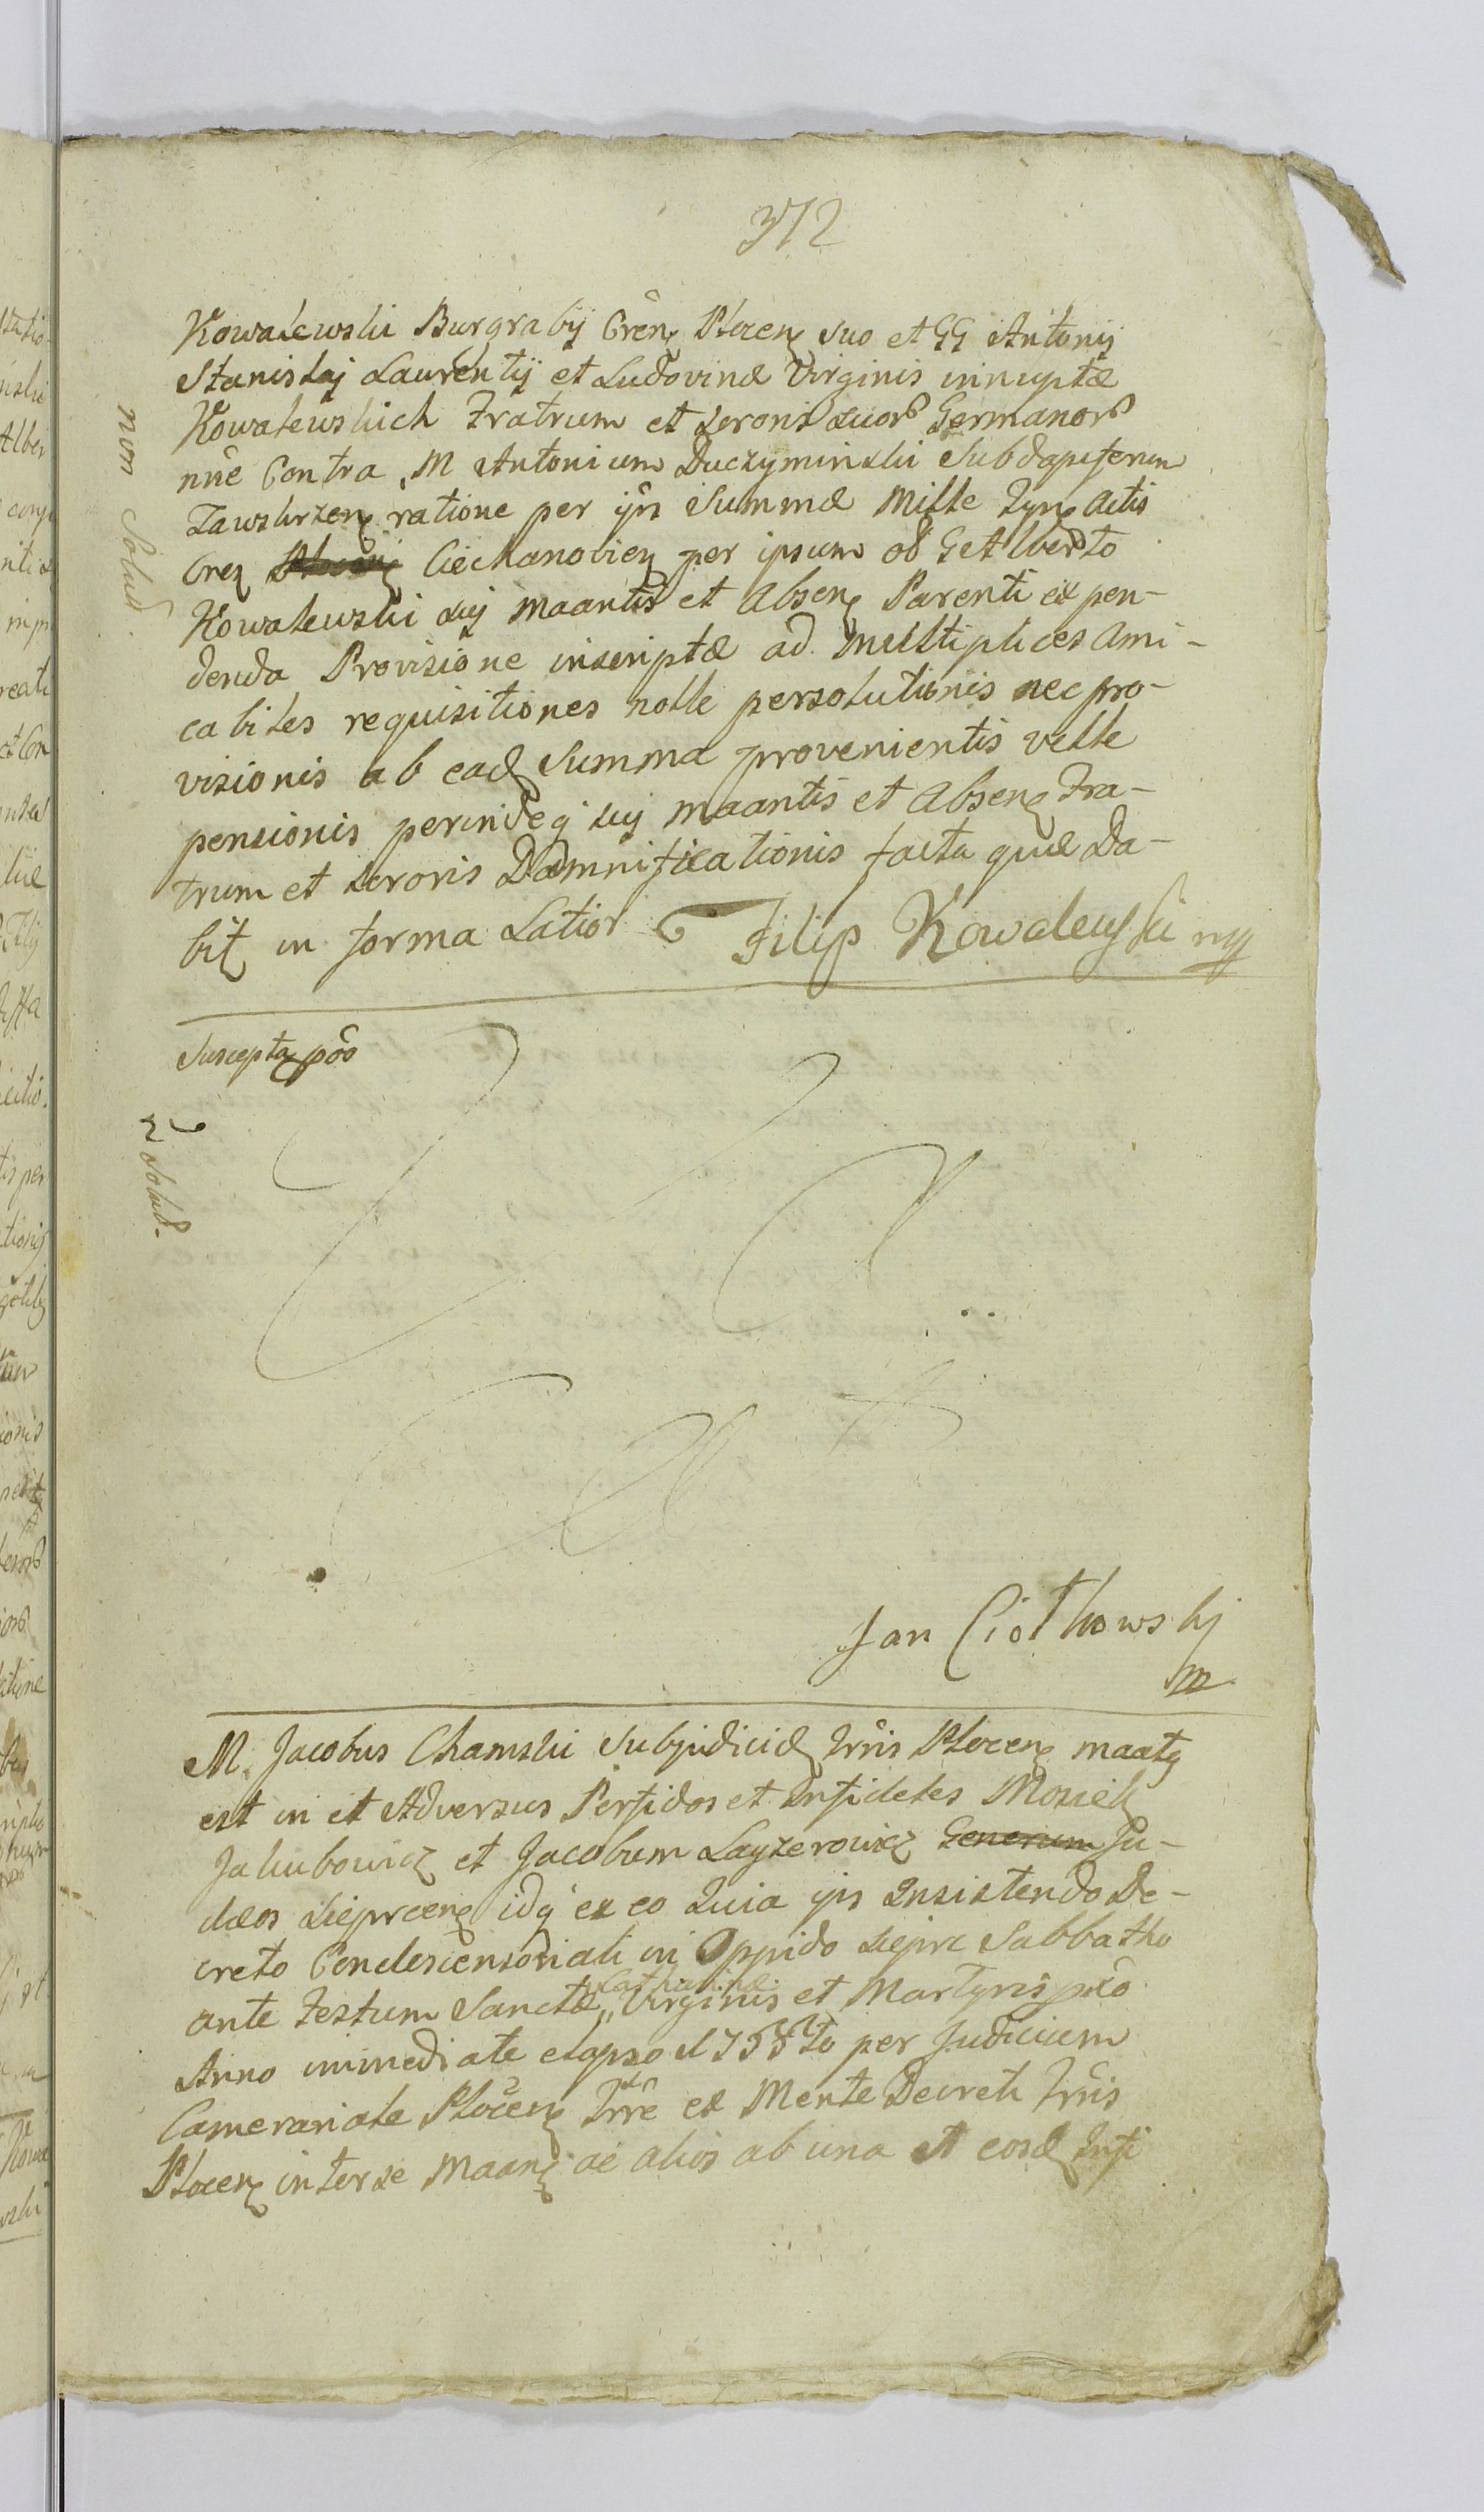 372
Kowalewski Burgrabij Cren Plocen suo et GG Antonij
Stanislaj Laurentij et Ludovinæ Virginis innuptæ
Kowalewskich Fratrum et Sororis suor Germanor
nne Contra M Antonium Duczyminski Subdapiferum
Zawskrzen ratione per ipn Summæ Mille Tyn actis
Cren Ciechanovien per ipsum olj G Alberto
Kowalewski suj maantis et Absen Parenti expen-
denda Provisione inscriptæ ad multiplices ami-
cabiles requisitiones nolle persolutionis nec pro-
visionis ab ead Summa provenientis velle
pensionis perindeq suj maantis et Absen Fra-
trum et sororis Damnificationis facta quæ Da-
bit in forma Latior Filip Kowalewski mp
non Solut
Suscepta pôo
Solut-
Jan Ciółkowskj
m
M. Jacobus Chamski Subjudicid Trris Plocen maatg
est in et Adversus Perfidos et Infideles Mosiek
Jakubowicz et Jacobum Layzerowicz Generum Ju-
dæos Sieprcen idq ex eo Quia ipi Insistendo De-
creto Condescensoriali in Oppido Siepre Sabbatho
ante Festum Sanctæ Catharinæ Virginis et Martyris pto
Anno immediate elapso 1758to per Judicium
Camerariale Plocen Trre ex Mente Decreti Trris
Plocen inter se Maan ac alios ab una et eosd Infi